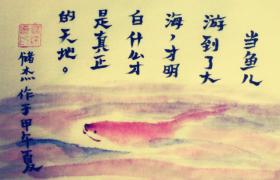 当鱼儿
游到了大
海，才明
白什么才
是真正
的天地。
储杰作于甲午夏